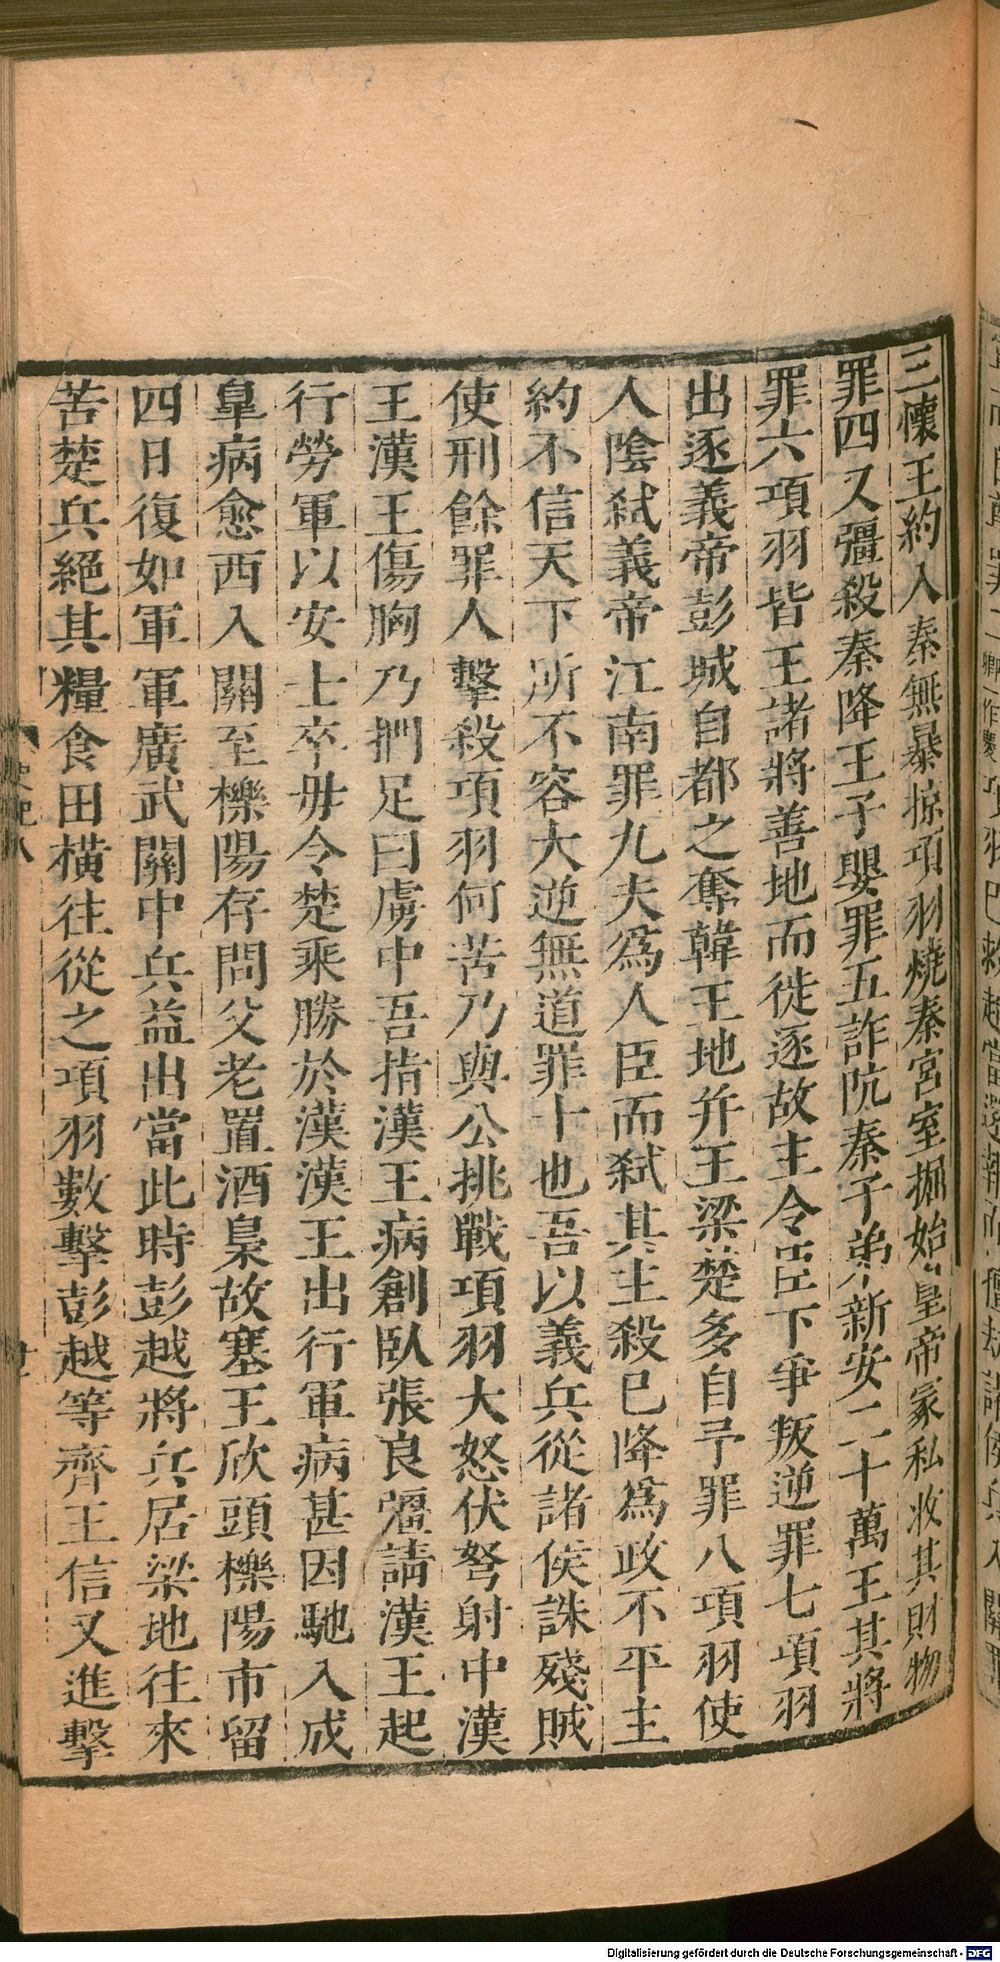 三懷王約入秦無暴掠項羽燒秦宮室掘始皇帝冢私收其財物
罪四又彊殺秦降王子嬰罪五詐阬秦子弟新安二十萬王其將
罪六項羽皆王諸將善地而徙逐故主令臣下爭叛逆罪七項羽
出逐義帝彭城自都之奪韓王地并王梁楚多自予罪八項羽使
人陰弑義帝江南罪九夫爲人臣而弑其主殺已降爲政不平主
約不信天下所不容大逆無道罪十也吾以義兵從諸侯誅殘賊
使刑餘罪人擊殺項羽何苦乃與公挑戰項羽大怒伏弩射中漢
王漢王傷胸乃捫足曰虜中吾指漢王病創臥張良彊請漢王起
行勞軍以安士卒毋令楚乘勝於漢漢王出行軍病甚因馳入成
皐病愈西入關至櫟陽存問父老置酒梟故塞王欣頭櫟陽市留
四日復如軍軍廣武關中兵益出當此時彭越將兵居梁地往來
苦楚兵絕其糧食田橫往從之項羽數擊彭越等齊王信又進擊
史記八
Digitalisierung gefördert durch die Deutsche Forschungsgemeinschaft - DFG